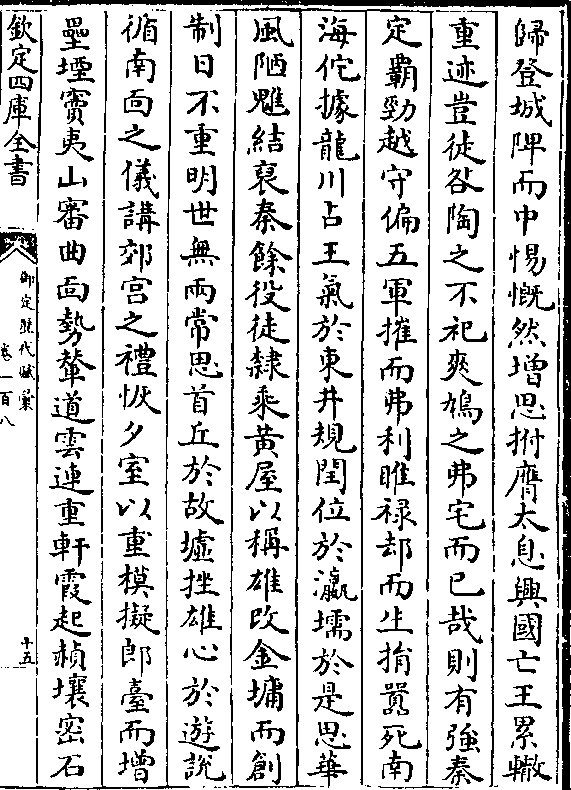 歸登城陴而中惕慨然增思拊膺太息興國亡王累轍
重迹豈徒咎陶之不祀爽鳩之弗宅而已哉則有強秦
定霸勁越守偏五軍摧而弗利睢祿却而生捐囂死南
海佗據龍川占王氣於東井規閏位於瀛壖於是思華
風陋魋結裒秦餘役徒隸乘黃屋以稱雄改金墉而創
制日不重明世無兩常思首丘於故墟挫雄心於遊說
循南面之儀講郊宮之禮恢夕室以重模擬郎臺而增
壘堙竇夷山審曲面勢輦道雲連重軒霞起赬壤密石
欽定四庫全書
御定歷代賦彙
卷一百八
十五